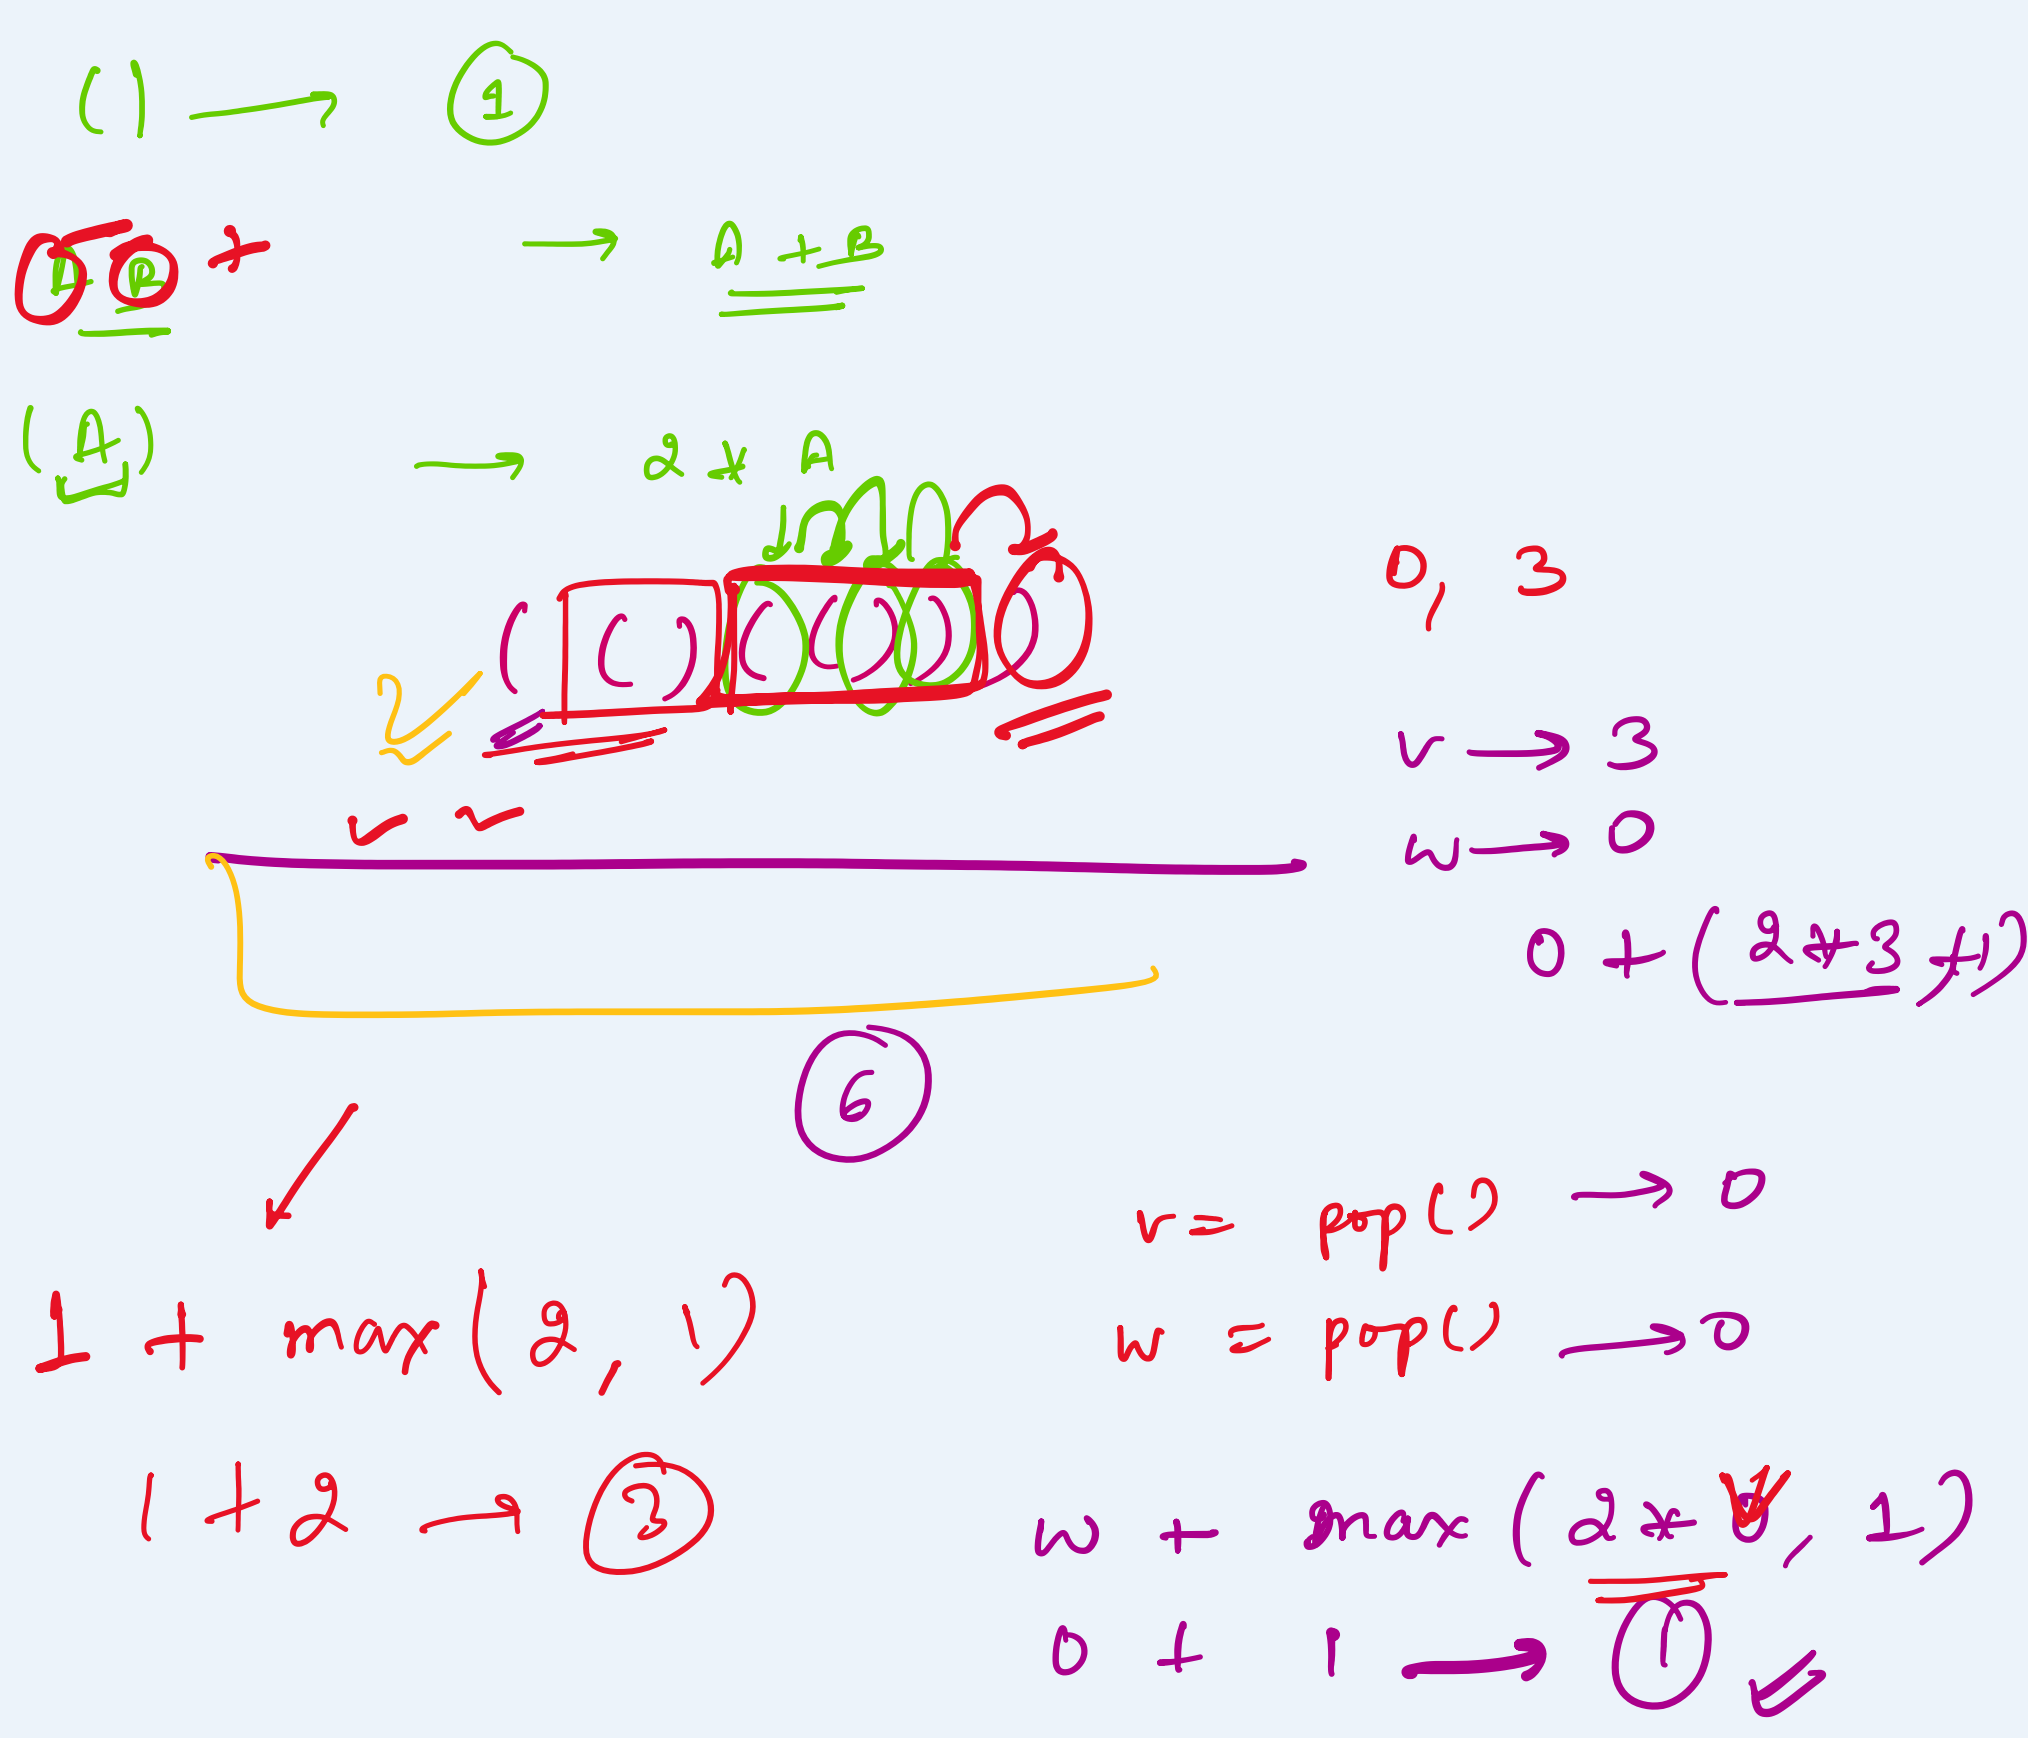 () → 1
AB + → A + B
(A) → 2 * A
( ( ) ( ( ) ) )
0, 3
v → 3
w → 0
0 + (2*3, 1)
6
v = pop() → 0
w = pop() → 0
1 + max(2, 1)
1 + 2 → 3
w + max(2* 0, 1)
0 + 1 → 1